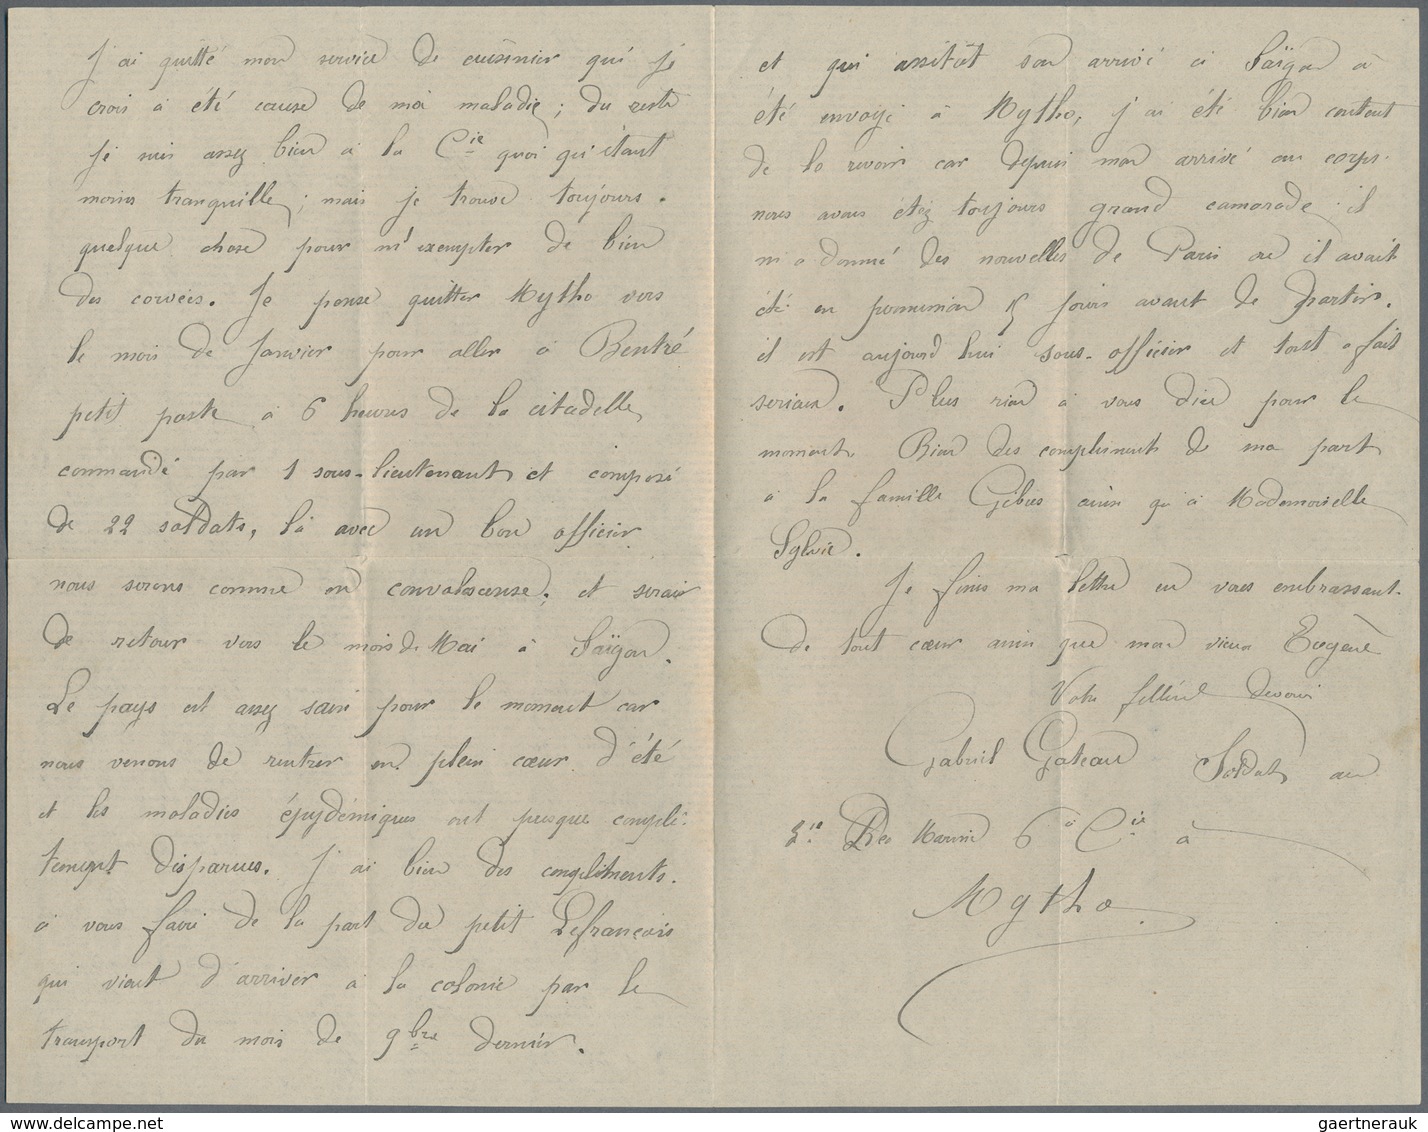 J'ai quitté mon service de cuisinier qui je
crois a été cause de ma maladie; du reste
je suis assez bien à la Cie quoi qu'étant
moins tranquille; mais je trouve toujours.
quelque chose pour m'exempter de bien
des corvées. Je pense quitter Mytho vers
le mois de Janvier pour aller à Bentré
petit poste à 6 heures de la citadelle
commandé par 1 sous-lieutenant et composé
de 22 soldats, là avec un bon officier
nous serons comme en convalescense, et serais
de retour vers le mois de Mai à Saïgon.
Le pays est assez sain pour le moment car
nous venons de rentrer en plein cœur d'été
et les maladies épydémiques ont presque complè-
tement disparues. J'ai bien des compliments.
à vous faire de la part du petit Lefrançois
qui vient d'arriver à la colonie par le
transport du mois de 9bre dernier.
et qui assitôt son arrivé à Saïgon a
été envoyé à Mytho, j'ai été bien content
de le revoir car depuis mon arrivé au corps.
nous avons étez toujours grand camarade il
m'a donné des nouvelles de Paris ou il avait
été en permission 15 jours avant de partir.
il est aujourd'hui sous-officier et tout a fait
serieux. Plus rien à vous dire pour le
moment. Bien des compliments de ma part
à la famille ainsi qu'à Mademoiselle
Sylvie.
Je finis ma lettre en vous embrassant.
de tout cœur ainsi que mon vieux Eugène
Votre filleul devoué
Gabriel Gateau Soldat au
Reg Marine 6e Cie à
Mytho
gaertnerauk
www.delcampe.net